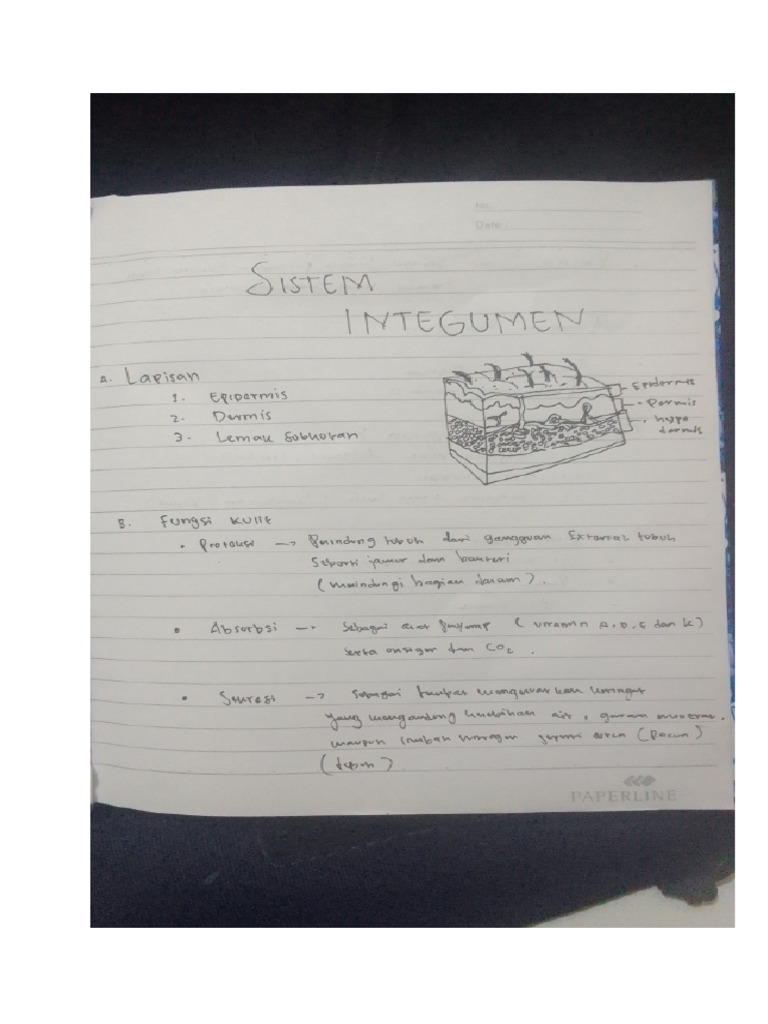 No.
Date :
SISTEM
INTEGUMEN
A. Lapisan
1. Epidermis
2. Dermis
3. Lemak Subkutan
Epidermis
Dermis
hypo
dermis
B. Fungsi Kulit
• Proteksi → Pelindung tubuh dari gangguan External tubuh
Seperti jamur dan bakteri
(melindungi bagian dalam).
• Absorbsi → Sebagai alat penyerap (vitamin A, D, E dan K)
serta oksigen dan CO₂.
• Sekresi → Sebagai tempat mengeluarkan keringat
yang mengandung kelebihan air, garam mineral
maupun limbah seperti urea (Racun)
(tubuh)
PAPERLINE